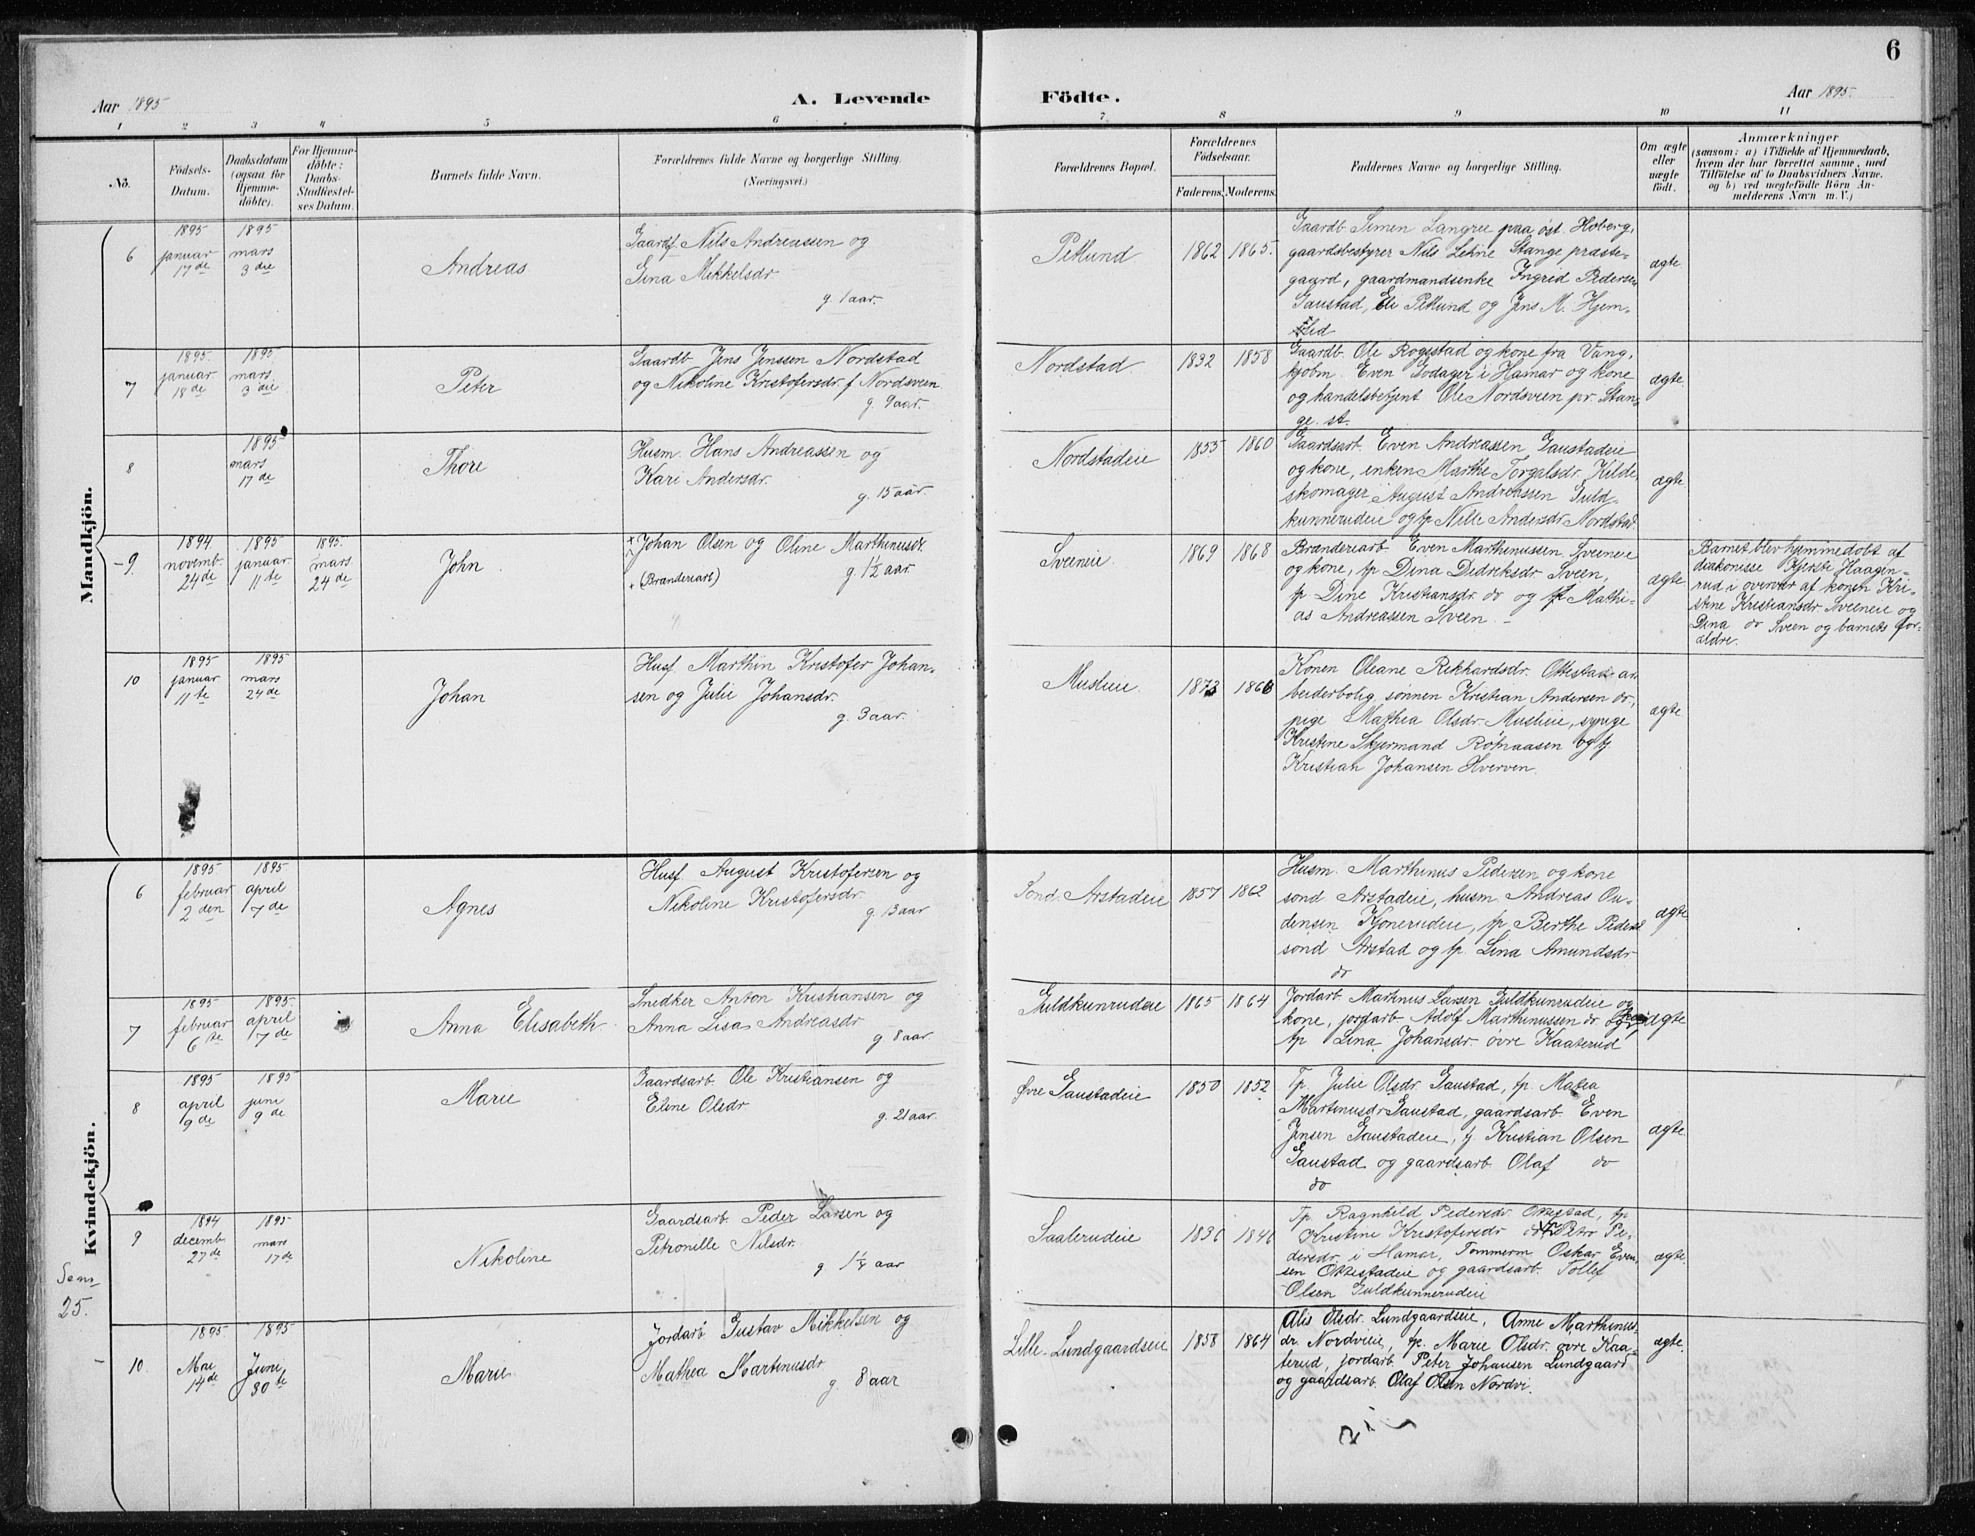 6
Aar 1895
A. Levende
Födte.
Aar 1895.
1 2 3 4 5 6 7 8 9 10 11
No.
Födsels-
Datum.
Daabsdatum
(ogsaa for
Hjemme-
döbte).
For Hjemme-
döbte:
Daabs-
Stadfæstel-
ses Datum.
Barnets fulde Navn.
Forældrenes fulde Navne og borgerlige Stilling.
(Næringsvei.)
Forældrenes Bopæl.
Forældrenes
Födselsaar.
Faderens. Moderens.
Faddernes Navne og borgerlige Stilling.
Om ægte
eller
uægte
födt.
Anmærkninger
(saasom: a) i Tilfælde af Hjemmedaab,
hvem der har forrettet samme, med
Tilföielse af to Daabsvidners Navne.
og b) ved uægtefödte Börn An-
melderens Navn m. V.)
Mandkjön.
6
1895
januar
17de
1895
mars
3die
Andreas
Gaardf. Nils Andreassen og
Sina Mikkelsdr
g. 1 aar.
Petlund
1862 1865.
Gaardb Simen Langree paa öst. Hoberg,
gaardsbestyrer Nils Lehne Stange præste-
gaard, gaardmandsenke Ingrid Pedersen
Gaustad, Eli Petlund og Jens M. Hjem-
sted
ægte
7
1895.
januar
18de
1895.
mars
3die
Peter
Gaardb. Jens Jenssen Nordstad
og Nikoline Kristofersdr f Nordsveen
g. 9 aar.
Nordstad
1832 1858
Gaardb. Ole Rogstad og kone fra Vang,
kjøbm. Even Godager i Hamar og kone
og handelsbetjent Ole Nordsveen pr. Stan-
ge. st.
ægte.
8
1895
mars
17de
Thore
Husm. Hans Andreassen og
Kari Andersdr.
g. 15 aar.
Nordstadeie
1855 1860
Gaardsarb. Even Andreassen Gaustadeie
og kone, enken Marthe Torgalsdr. Kilde,
skomager August Andreassen Guld-
kunnerudeie og tp Nille Andersdr Nordstad.
ægte.
9.
1894
novemb.
24de
1895
januar
11te
1895.
mars
24de
John
Johan Olsen og Oline Marthinusdr.
(Brænderiarb)
g. 1½ aar
Sveeneie.
1869 1868
Brænderiarb. Even Marthinussen Sveeneie
og kone, tp Dina Didriksdr Sveen,
tp Dine Kristiansdr do og Mathi-
as Andreassen Sveen.
ægte
Barnet blev hjemmedøbt af
diakonisse Kjerste Haagen-
rud i overvær af konen Kri-
stine Kristiansdr. Sveeneie og
Dina do Sveen og barnets for-
ældre.
10
1895
januar
11te
1895
mars
24de
Johan
Husf. Marthin Kristofer Johan-
sen og Julie Johansdr.
g. 3 aar.
Muslieie.
1873 1866
Konen Oleane Rikhardsdr. Ottestad ar-
beiderbolig, sønnen Kristian Andersen do,
pige Mathea Olsdr. Muslieie, sypige
Kristine Skjermand Røfnaasen og tj
Kristian Johansen Hverven.
ægte
Kvindekjön.
6
1895
februar
2den
1895
april
7de
Agnes
Husf. August Kristofersen og
Nikoline Kristofersdr.
g. 13 aar
Sond. Arstadeie
1857 1862
Husm. Marthinus Pedersen og kone
sond Arstadeie, husm. Andreas Ou-
densen Kjonerudeie, tp Berthe Peders
sond Arstad og tp. Lina Amundsdr
do
ægte
7
1895
februar
6te
1895.
april
7de
Anna Elisabeth
Snedker Anton Kristiansen og
Anna Lisa Andreasdr
g. 8 aar.
Guldkunrudeie
1865 1864
Jordarb. Martinus Larsen Guldkunrudeie og
kone, jordarb Adolf Marthinussen do og
tp Lina Johansdr. övre Kaaterud
ægte
8
1895
april
9de
1895
juni
9de
Marie
Gaardsarb. Ole Kristiansen og
Eline Olsdr
g. 21 aar.
Øvre Gaustadeie
1850 1852
Tp. Julie Olsdr. Gaustad, tp. Matea
Martinusdr Gaustad, gaardsarb Even
Jensen Gaustadeie, tj. Kristian Olsen
Gaustad og gaardsarb Olaf do
do
ægte.
9
1894
decemb.
27de
1895.
mars
17de
Nikoline
Gaardsarb. Peder Larsen og
Petronille Nilsdr.
g. 1¼ aar
Saalerudeie
1836 1846
Tp. Ragnhild Pedersdr. Ottestad, tp
Kristine Kristofersdr do Petr Pe-
dersdr. i Hamar, Tommerm. Oskar Even-
sen Ottestadeie og gaardsarb. Tollef
Olsen Guldkunnerudeie
ægte.
25.
10
1895.
Mai
14de
1895
Juni
30te
Marie
Jordarb Gustav Mikkelsen og
Mathea Martinusdr
g. 8 aar
Lille-Lundgaardseie
1858 1864
Alis Olsdr. Lundgaardseie, Anne Marthinus-
dr. Nordvieie, tp. Marie Olsdr. øvre Kaa-
terud, jordarb. Peter Johansen Lundgaard
og gaardsarb. Olaf Olsen Nordvi.
ægte.